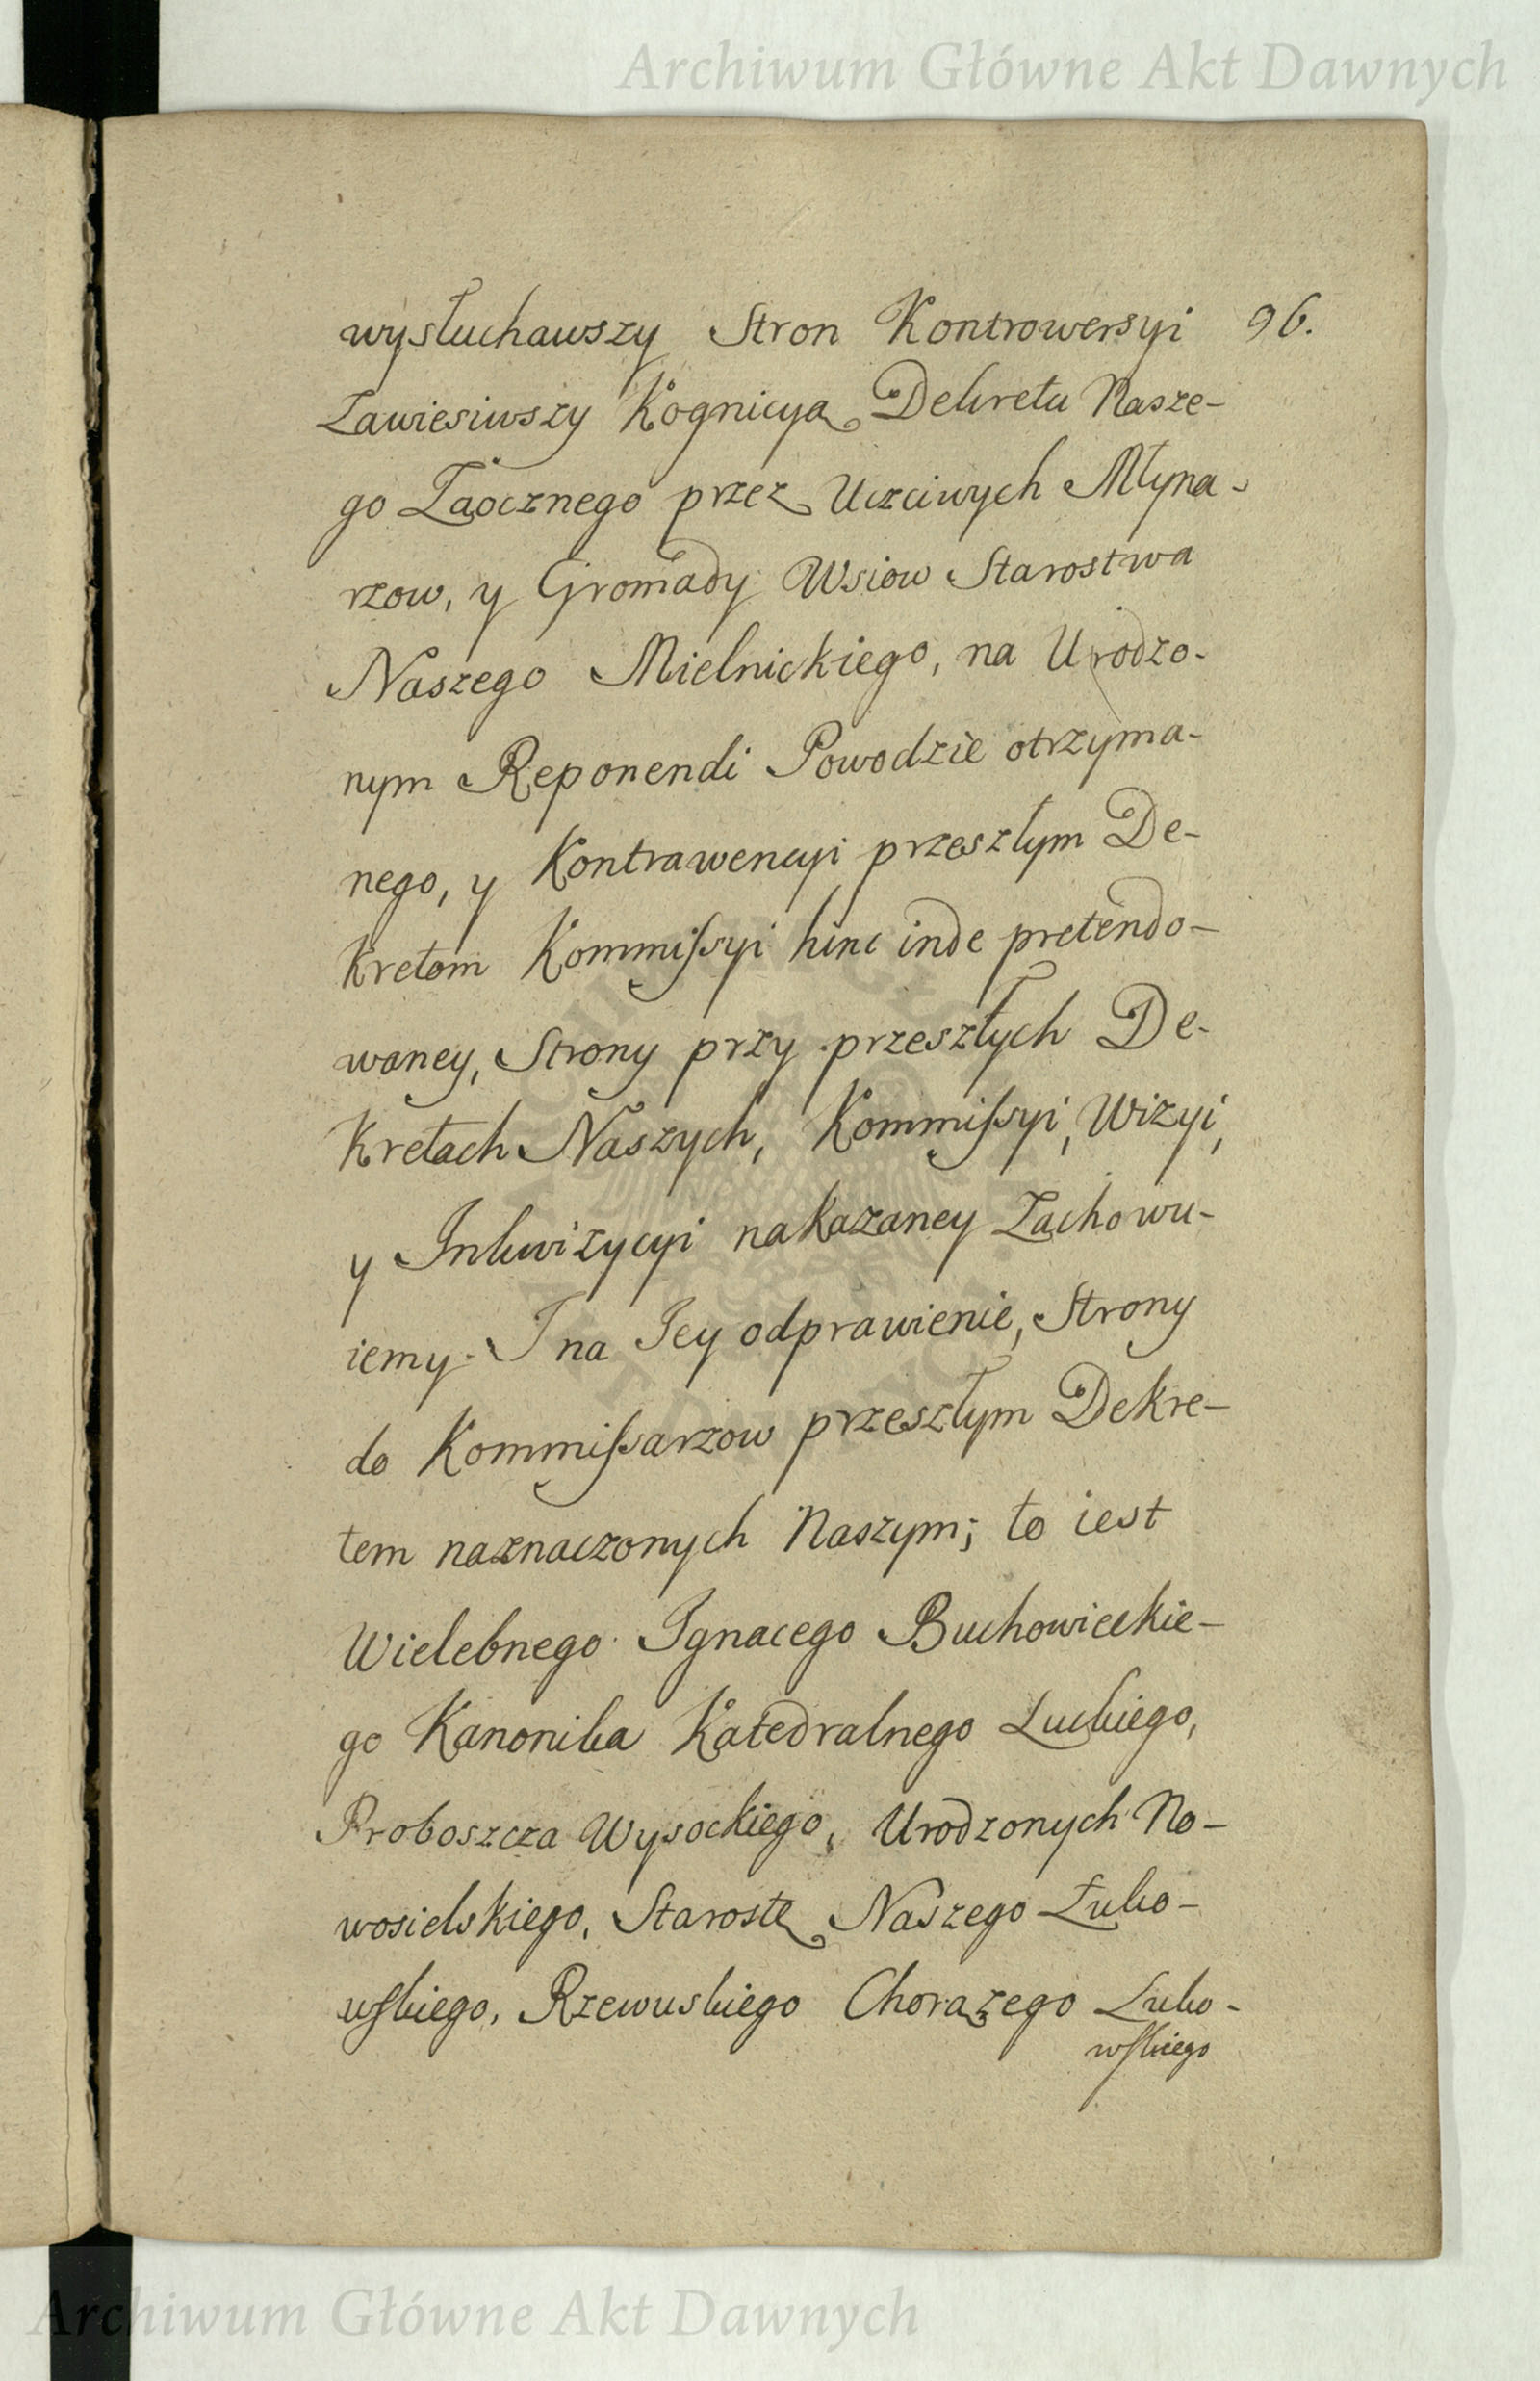 Archiwum Główne Akt Dawnych
wysłuchawszy Stron Kontrowersyi 96.
Zawiesiwszy Kognicyą Dekretu Nasze-
go Zaocznego przez Uczciwych Młyna-
rzow, y Gromady Wsiow Starostwa
Naszego Mielnickiego, na Urodzo-
nym Reponendi Powodzie otrzyma-
nego, y Kontrawencyi przeszłym De-
kretom Kommissyi hinc inde pretendo-
waney, Strony przy przeszłych De-
kretach Naszych, Kommissyi, Wizyi,
y Inkwizycyi nakazaney Zachowu-
iemy. I na Jey odprawienie, Strony
do Kommissarzow przeszłym Dekre-
tem naznaczonych Naszym; to iest
Wielebnego Ignacego Buchowieckie-
go Kanonika Katedralnego Luckiego,
Proboszcza Wysockiego, Urodzonych No-
wosielskiego, Starostę Naszego Łuko-
wskiego, Rzewuskiego Chorążego Łuko-
wskiego
Archiwum Główne Akt Dawnych